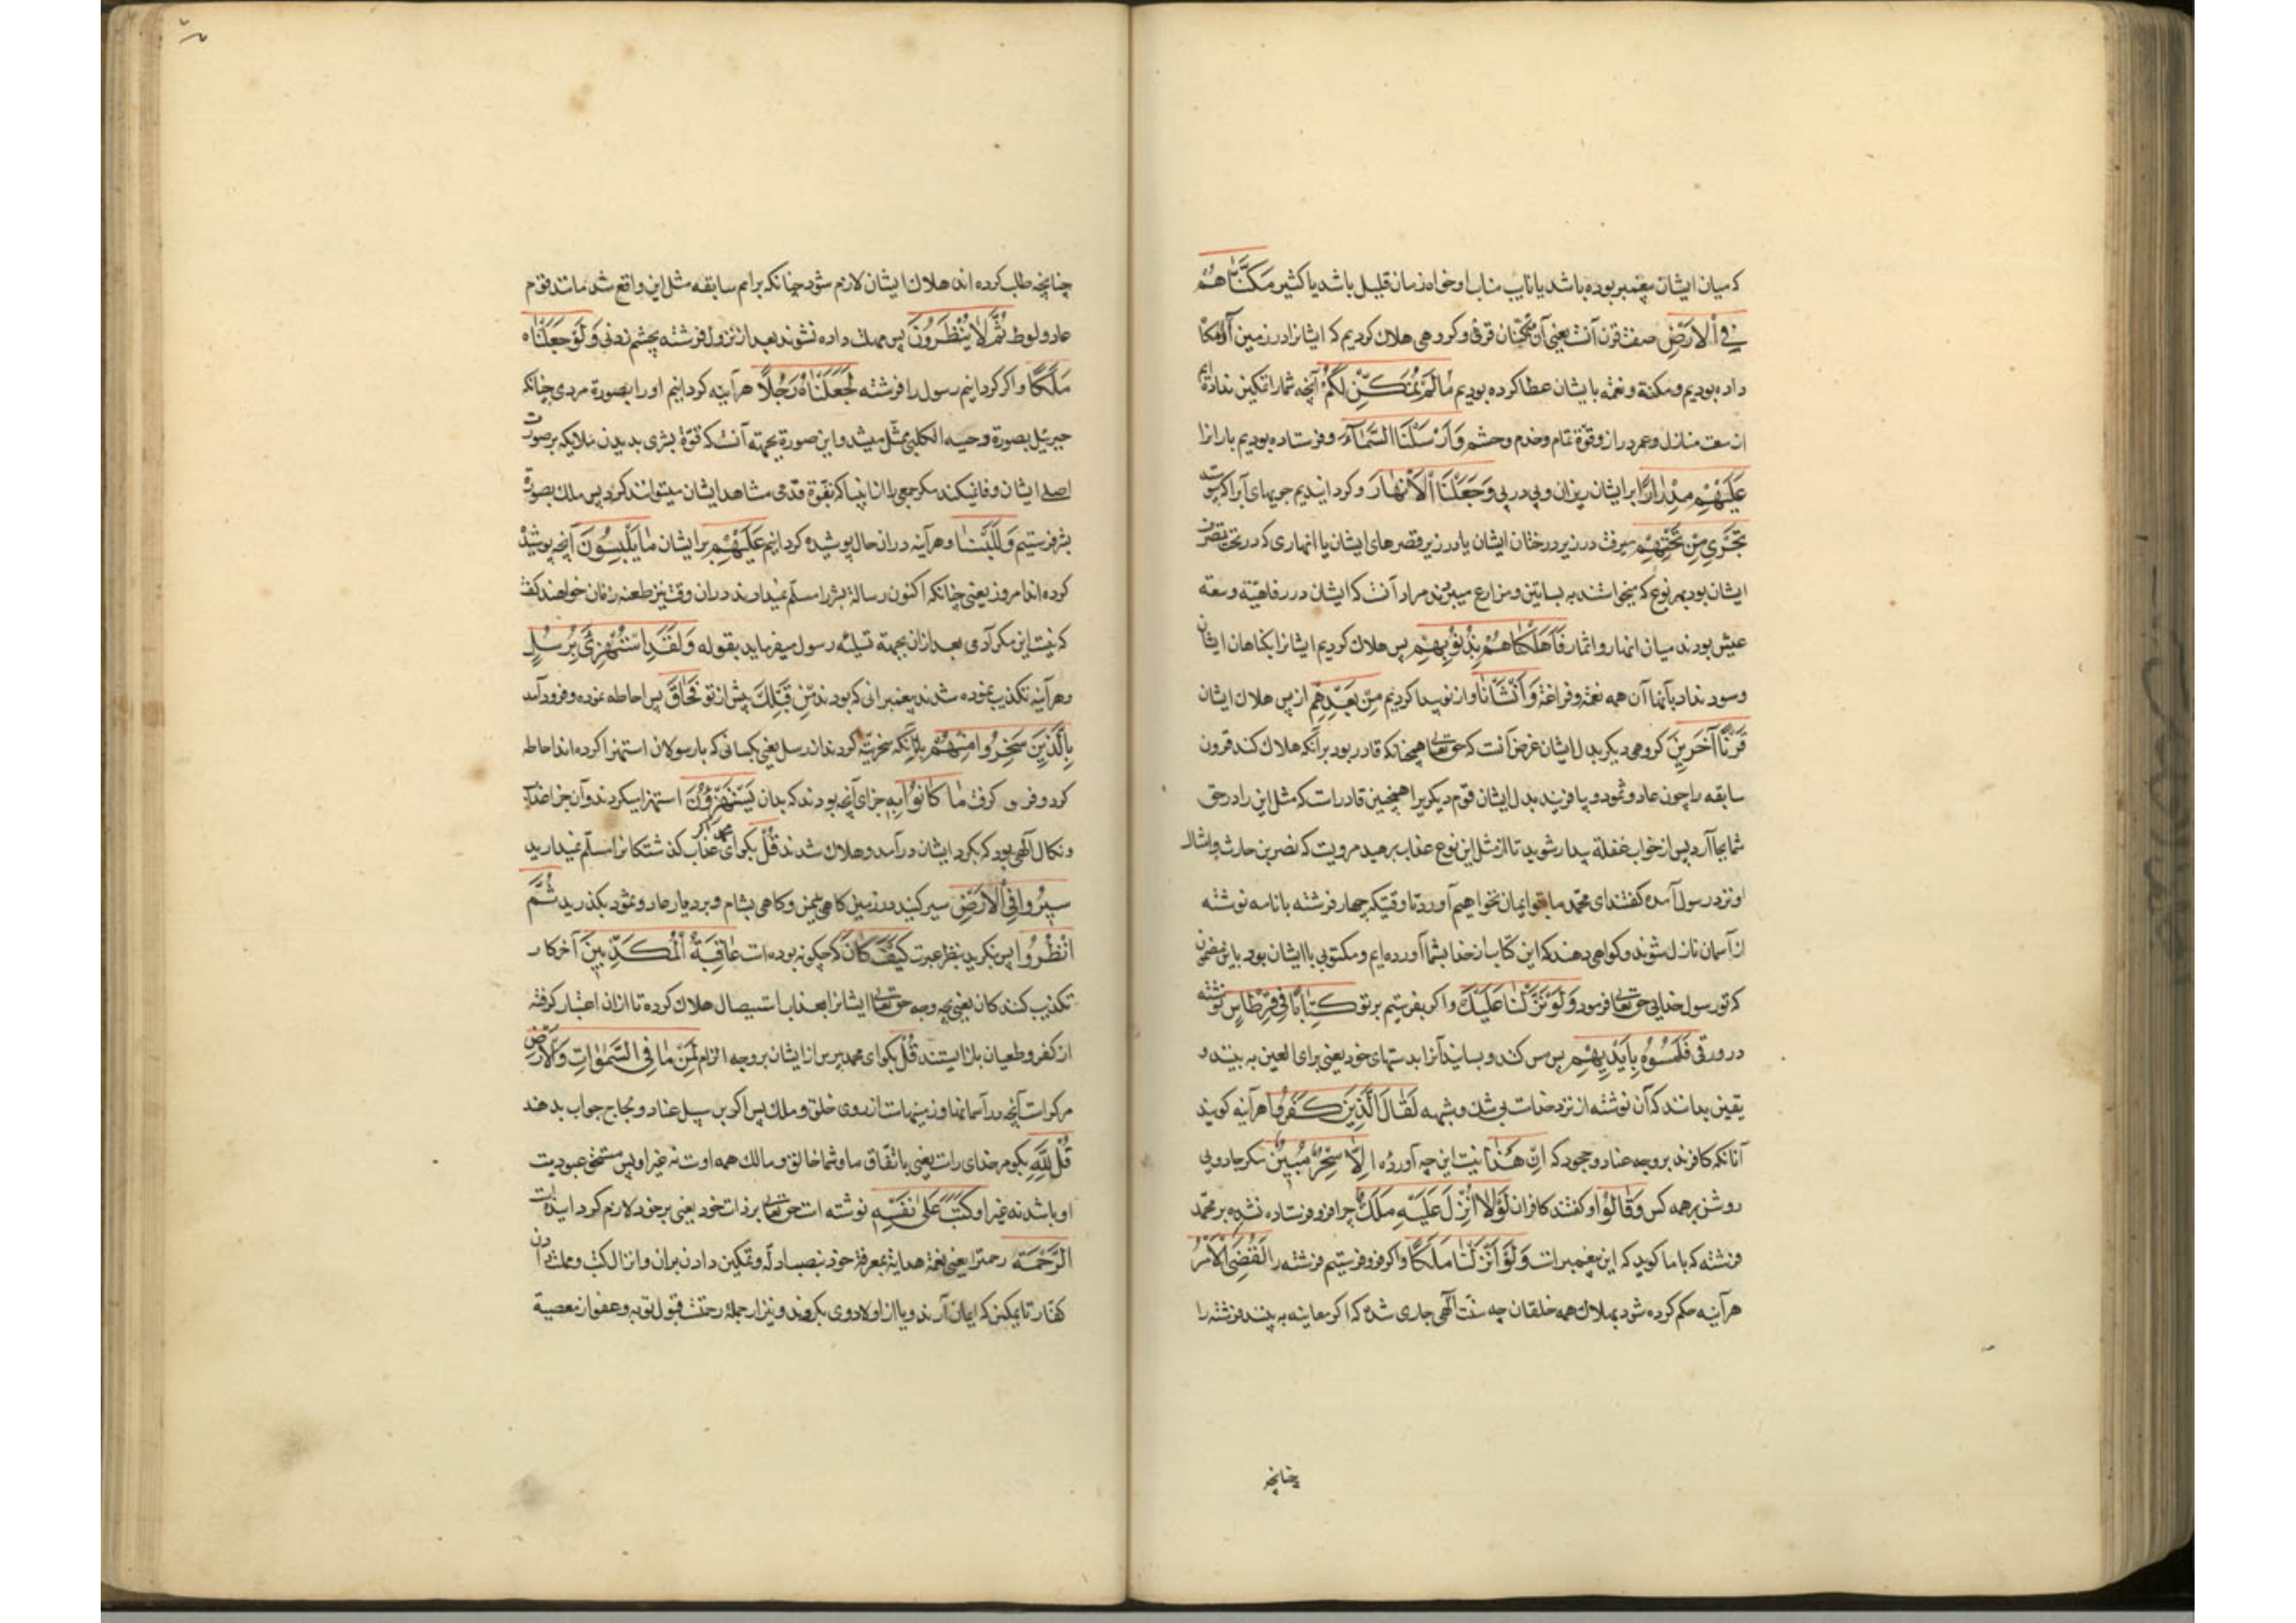 که میان ایشان پیغمبر بوده باشد یا نایب مناب او خواه زمان قلیل باشد یا کثیر مَكَّنَّاهُمْ
فِي الْاَرْضِ صفت قرن آنست یعنی آن قرنی و کروهی هلاک کردیم که ایشانرا در زمین
داده بودیم و مکنة و نعمة بایشان عطا کرده بودیم مَا لَمْ نُمَكِّنْ لَكُمْ آنچه شما را تمکین نداده ایم
از سعت منازل و عمر دراز و قوّة تمام و خدم و حشم وَاَرْسَلْنَا السَّمَآءَ و فرستاده بودیم بارانرا
عَلَيْهِمْ مِدْرَارًا بر ایشان ریزان و پی در پی وَجَعَلْنَا الْاَنْهَارَ و کردانیدیم جویهای آبرا که پیوسته
تَجْرِي مِنْ تَحْتِهِمْ میرفت در زیر درختان ایشان یا در زیر قصرهای ایشان یا انهاری که در تحت تصرف
ایشان بود بهر نوع که میخواستند به بساتین و مزارع میبردند مراد آنست که ایشان در رفاهیّة و سعة
عیش بودند میان انهار و اثمار فَاَهْلَكْنَاهُمْ بِذُنُوبِهِمْ پس هلاک کردیم ایشانرا بکناهان ایشان
و سود نداد بآنها آن همه نعمة و فراغة وَاَنْشَأْنَا و از نو پیدا کردیم مِنْ بَعْدِهِمْ از پس هلاک ایشان
قَرْنًا آخَرِينَ کروهی دیکر بدل ایشان غرض آنست که حق تعالی همچنانکه قادر بود برآنکه هلاک کند قرون
سابقه را چون عاد و ثمود و بیافریند بدل ایشان قوم دیکر را همچنین قادرست که مثل این را در حق
شما بجا آرد پس از خواب غفلة بیدار شوید تا از مثل این نوع عذاب برهید مرویست که نضر بن حارث و امثال
او نزد رسول آمده کفتند ای محمّد ما بتو ایمان نخواهیم آورد تا وقتیکه چهار فرشته با نامه نوشته
از آسمان نازل شوند و کواهی دهند که این کتاب از خدا بشما آورده ایم و مکتوبی با ایشان بود باین مضمون
که تو رسول خدایی حق تعالی فرمود وَلَوْ نَزَّلْنَا عَلَيْكَ و اکر بفرستیم بر تو كِتَابًا فِي قِرْطَاسٍ نوشته
در ورقی فَلَمَسُوهُ بِاَيْدِيهِمْ پس مس کنند و بسایند آنرا بدستهای خود یعنی برای العین به بینند و
یقین بدانند که آن نوشته از نزد خداست بی شک و شبهه لَقَالَ الَّذِينَ كَفَرُوا هرآینه کویند
آنانکه کافرند بر وجه عناد و جحود که اِنْ هٰذَا نیست این چه آورده اِلَّا سِحْرٌ مُبِينٌ مکر جادویی
روشن بر همه کس وَقَالُوا و کفتند کافران لَوْلَا اُنْزِلَ عَلَيْهِ مَلَكٌ چرا فرو فرستاده نشده بر محمّد
فرشته که با ما کوید که این پیغمبر است وَلَوْ اَنْزَلْنَا مَلَكًا و اکر فرو فرستیم فرشته را لَقُضِيَ الْاَمْرُ
هرآینه حکم کرده شود بهلاک همه خلقان چه سنّت آلهی جاری شده که اکر معاینه به بینند فرشته را
چنانچه
چنانچه طلب کرده اند هلاک ایشان لازم شود چنانکه بر امم سابقه مثل این واقع شد مانند قوم
عاد و لوط ثُمَّ لَا يُنْظَرُونَ پس مهلت داده نشوند بعد از نزول فرشته بچشم زدنی وَلَوْ جَعَلْنَاهُ
مَلَكًا و اکر کردانیم رسول را فرشته لَجَعَلْنَاهُ رَجُلًا هرآینه کردانیم او را بصورة مردی چنانکه
جبرئیل بصورة دحیه الکلبی ممثّل میشد و این صورة بجهته آنست که قوّة بشری بدیدن ملایکه بر صورت
اصلی ایشان وفا نمیکند مکر جمعی را از انبیا که بقوّة قدسی مشاهد ایشان میتوانند کرد پس ملک بصورة
بشر فرستیم وَلَلَبَسْنَا و هرآینه در ان حال پوشیده کردانیم عَلَيْهِمْ بر ایشان مَا يَلْبِسُونَ آنچه پوشیده
کرده اند امروز یعنی چنانکه اکنون رسالة بشر را مسلّم نمیدارند در ان وقت نیز طعنه زنان خواهند کفت
که نیست این مکر آدمی بعد از ان بجهته تسلیه رسول میفرماید بقوله وَلَقَدِ اسْتُهْزِئَ بِرُسُلٍ
و هرآینه تکذیب نموده شدند پیغمبرانی که بودند مِنْ قَبْلِكَ پیش از تو فَحَاقَ پس احاطه نموده و فرود آمد
بِالَّذِينَ سَخِرُوا مِنْهُمْ بآنانکه سخریّه کردند از رسل یعنی کسانی که با رسولان استهزا کرده اند احاطه
کرد و فرو کرفت مَا كَانُوا بِهِ جزای آنچه بودند که بدان يَسْتَهْزِؤُنَ استهزا میکردند و آن جزا عذاب
و نکال آلهی بود که بکرد ایشان در آمد و هلاک شدند قُلْ بکو ای محمد اکر عذاب کذشتکانرا مسلّم نمیدارید
سِيرُوا فِي الْاَرْضِ سیر کنید در زمین کاهی بیمن و کاهی بشام و بر دیار عاد و ثمود بکذرید ثُمَّ
انْظُرُوا پس بنکرید بنظر عبرت كَيْفَ كَانَ که چکونه بوده است عَاقِبَةُ الْمُكَذِّبِينَ آخر کار
تکذیب کنندکان یعنی بچه وجه حق تعالی ایشانرا بعذاب استیصال هلاک کرده تا از ان اعتبار کرفته
از کفر و طغیان باز ایستند قُلْ بکو ای محمد بپرس از ایشان بر وجه الزام لِمَنْ مَا فِي السَّمٰوَاتِ وَالْاَرْضِ
مر کراست آنچه در آسمانها و زمینهاست از روی خلق و ملک پس اکر بر سبیل عناد و لجاج جواب ندهند
قُلْ لِلّٰهِ بکو مر خدای راست یعنی باتّفاق ما و شما خالق و مالک همه اوست نه غیر او پس مستحق عبودیت
او باشد نه غیر او كَتَبَ عَلٰى نَفْسِهِ نوشته است حق تعالی بر ذات خود یعنی بر خود لازم کردانیده است
الرَّحْمَةَ رحمترا یعنی نعمة هدایة بمعرفة خود بنصب ادلّه و تمکین دادن بران و انزال کتب و مهلت دادن
کفّار تا ممکن که ایمان آرند و یا از اولاد وی بکروند و نیز از جملهٔ رحمتست قبول توبه و عفو از معصیة